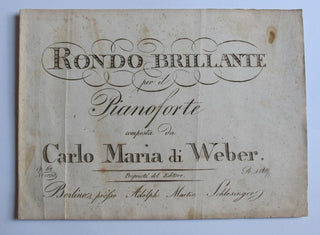 RONDO BRILLANTE
per il
Pianoforte
composta da
Carlo Maria di Weber.
Proprietà del Editore.
Berlino, presso Adolph Martin Schlesinger